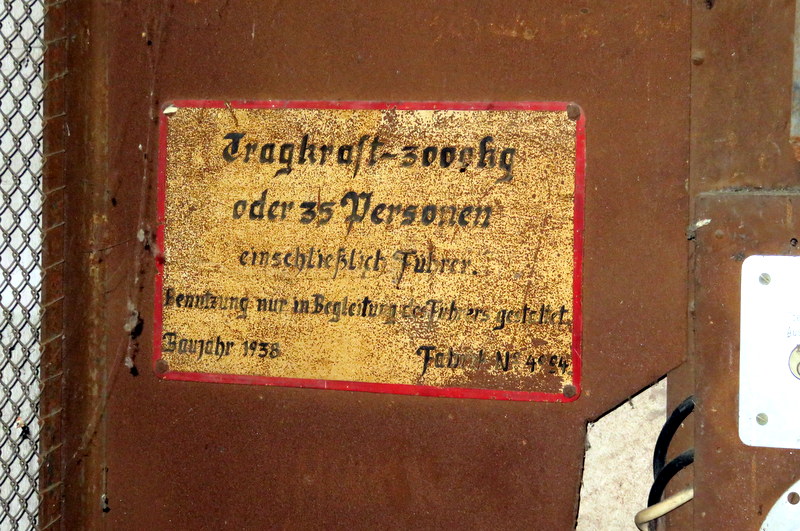 Tragkraft-3000kg
oder 35 Personen
einschließlich Führer.
Benutzung nur in Begleitung des Führers gestattet.
Baujahr 1938 Fabrik Nº